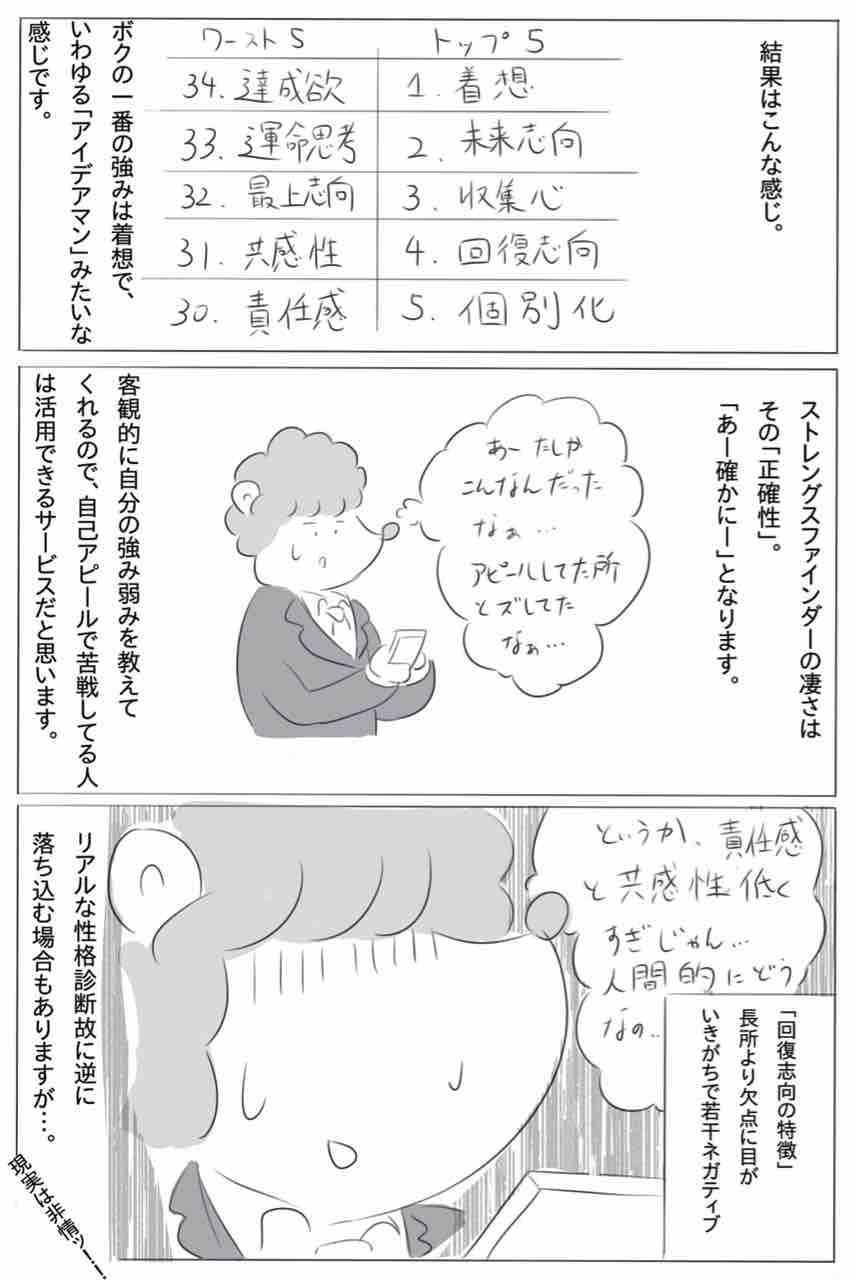 結果はこんな感じ。
トップ5
1.着想
2.未来志向
3.収集心
4.回復志向
5.個別化
ワースト5
34.達成欲
33.運命思考
32.最上志向
31.共感性
30.責任感
ボクの一番の強みは着想で、
いわゆる「アイデアマン」みたいな
感じです。
ストレングスファインダーの凄さは
その「正確性」。
「あー確かにー」となります。
あーたしか
こんなんだった
なぁ…
アピールしてた所
とズしてた
なぁ…
客観的に自分の強み弱みを教えて
くれるので、自己アピールで苦戦してる人
は活用できるサービスだと思います。
というか、責任感
と共感性低く
すぎじゃん…
人間的にどう
なの..
「回復志向の特徴」
長所より欠点に目が
いきがちで若干ネガティブ
リアルな性格診断故に逆に
落ち込む場合もありますが…。
現実は非情ッ！！